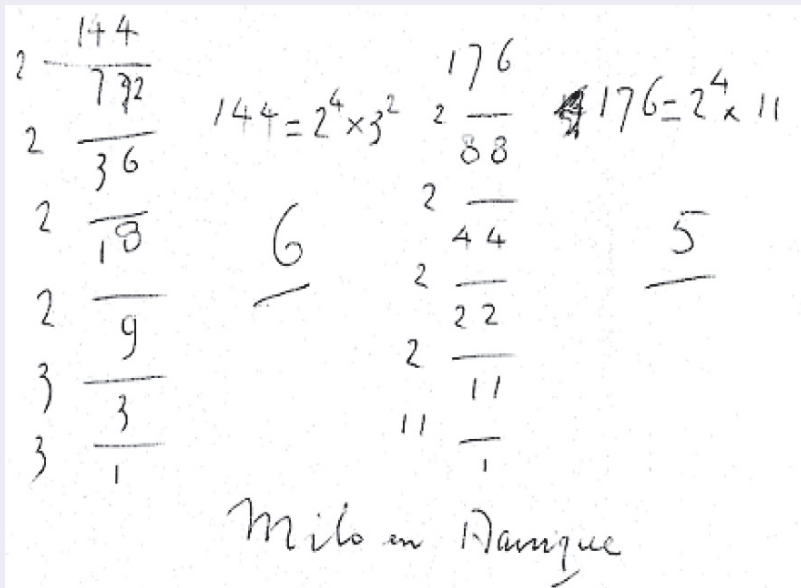 144
2 72
2 36
2 18
2 9
3 3
3 1
144=2^4×3^2
6
176
2 88
2 44
2 22
2 11
11 1
176=2^4×11
5
Milo en